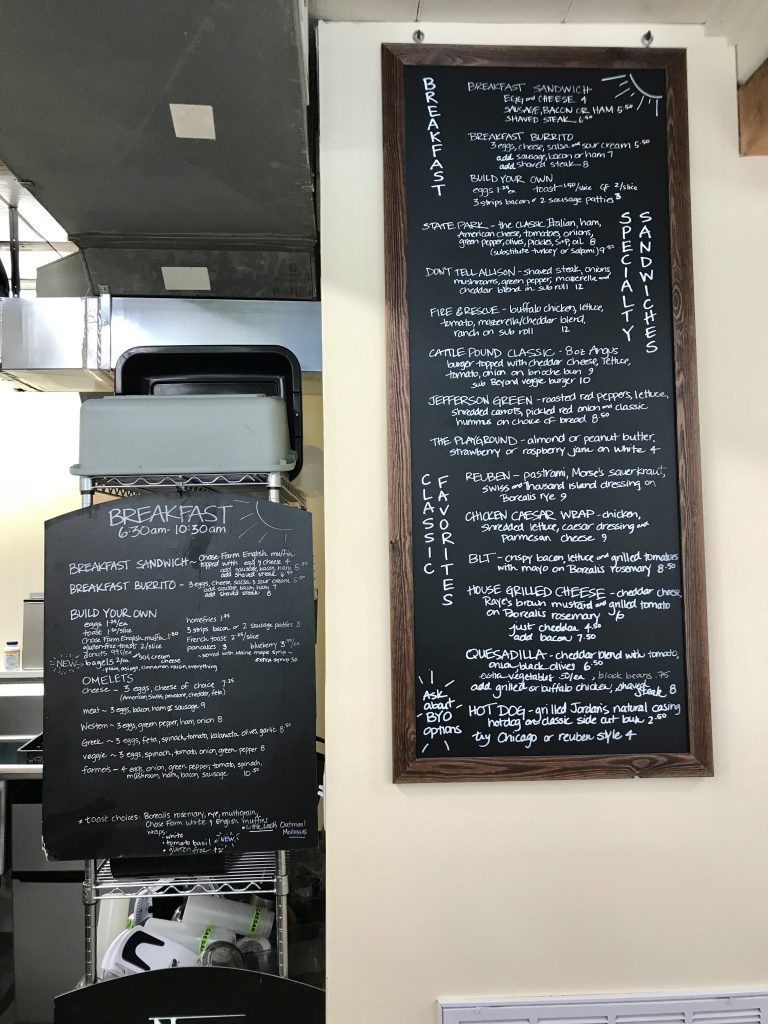 BREAKFAST
BREAKFAST SANDWICH
EGG and CHEESE 4
SAUSAGE, BACON OR HAM 5.50
SHAVED STEAK 6.50
BREAKFAST BURRITO
3 eggs, cheese, salsa and sour cream 5.50
add sausage, bacon or ham 7
add shaved steak - 8
BUILD YOUR OWN
eggs 1.25/ea toast 1.50/slice GF 2/slice
3 strips bacon or 2 sausage patties 3
SPECIALTY
SANDWICHES
STATE PARK - the classic Italian, ham,
American cheese, tomatoes, onions,
green pepper, olives, pickles, S+P, oil 8
(substitute turkey or salami) 9.50
DON'T TELL ALLISON - shaved steak, onions,
mushrooms, green pepper, mozzerella and
cheddar blend in sub roll 12
FIRE & RESCUE - buffalo chicken, lettuce,
tomato, mozerella/cheddar blend,
ranch on sub roll 12
CATTLE POUND CLASSIC - 8oz Angus
burger topped with cheddar cheese, lettuce,
tomato, onion on brioche bun 9
sub Beyond veggie burger 10
JEFFERSON GREEN - roasted red peppers, lettuce,
shredded carrots, pickled red onion and classic
hummus on choice of bread 8.50
THE PLAYGROUND - almond or peanut butter,
strawberry or raspberry jam on white 4
CLASSIC
FAVORITES
REUBEN - pastrami, Morse's sauerkraut,
swiss and thousand island dressing on
Borealis rye 9
CHICKEN CAESAR WRAP - chicken,
shredded lettuce, caesar dressing and
parmesan cheese 9
BLT - crispy bacon, lettuce and grilled tomatoes
with mayo on Borealis rosemary 8.50
HOUSE GRILLED CHEESE - cheddar cheese,
Raye's brown mustard and grilled tomato
on Borealis rosemary 6
just cheddar 4.50
add bacon 7.50
QUESADILLA - cheddar blend with tomato,
onion, black olives 6.50
extra vegetables .50/ea, black beans .75
add grilled or buffalo chicken, shaved
steak 8
HOT DOG - grilled Jordan's natural casing
hotdog on classic side cut bun 2.50
try Chicago or reuben style 4
Ask
about
BYO
options
BREAKFAST
6:30am - 10:30am
BREAKFAST SANDWICH ~ Chose Farm English muffin
topped with egg & cheese 4
add sausage, bacon, ham 5.50
add shaved steak 6.50
BREAKFAST BURRITO ~ 3 eggs, cheese, salsa & sour cream 5.50
add sausage, bacon, ham 7
add shaved steak 8
BUILD YOUR OWN
eggs 1.25/ea homefries 1.75
toast 1.50/slice 3 strips bacon or 2 sausage patties 3
Chose Farm English muffin 1.50 French toast 2.25/slice
gluten-free toast 2/slice pancakes 3 blueberry
donuts 99¢/ea ~ served with Maine maple syrup ~
NEW bagels 2/ea cream cheese extra syrup .50
plain, asiago, cinnamon raisin, everything
OMELETS
cheese ~ 3 eggs, cheese of choice 7.25
(American, Swiss, provolone, cheddar, feta)
meat ~ 3 eggs, bacon, ham & sausage 9
Western ~ 3 eggs, green pepper, ham, onion 8
Greek ~ 3 eggs, feta, spinach, tomato, kalamata olives, garlic 8.50
veggie ~ 3 eggs, spinach, tomato, onion, green pepper 8
farmers ~ 4 eggs, onion, green pepper, tomato, spinach,
mushroom, ham, bacon, sausage 10.50
* toast choices: Borealis rosemary, rye, multigrain,
Chose Farm white & English muffin
• Little Lad's Oatmeal
Molasses
wraps:
• white
• tomato basil NEW
• gluten free
CAESAR
CAESAR